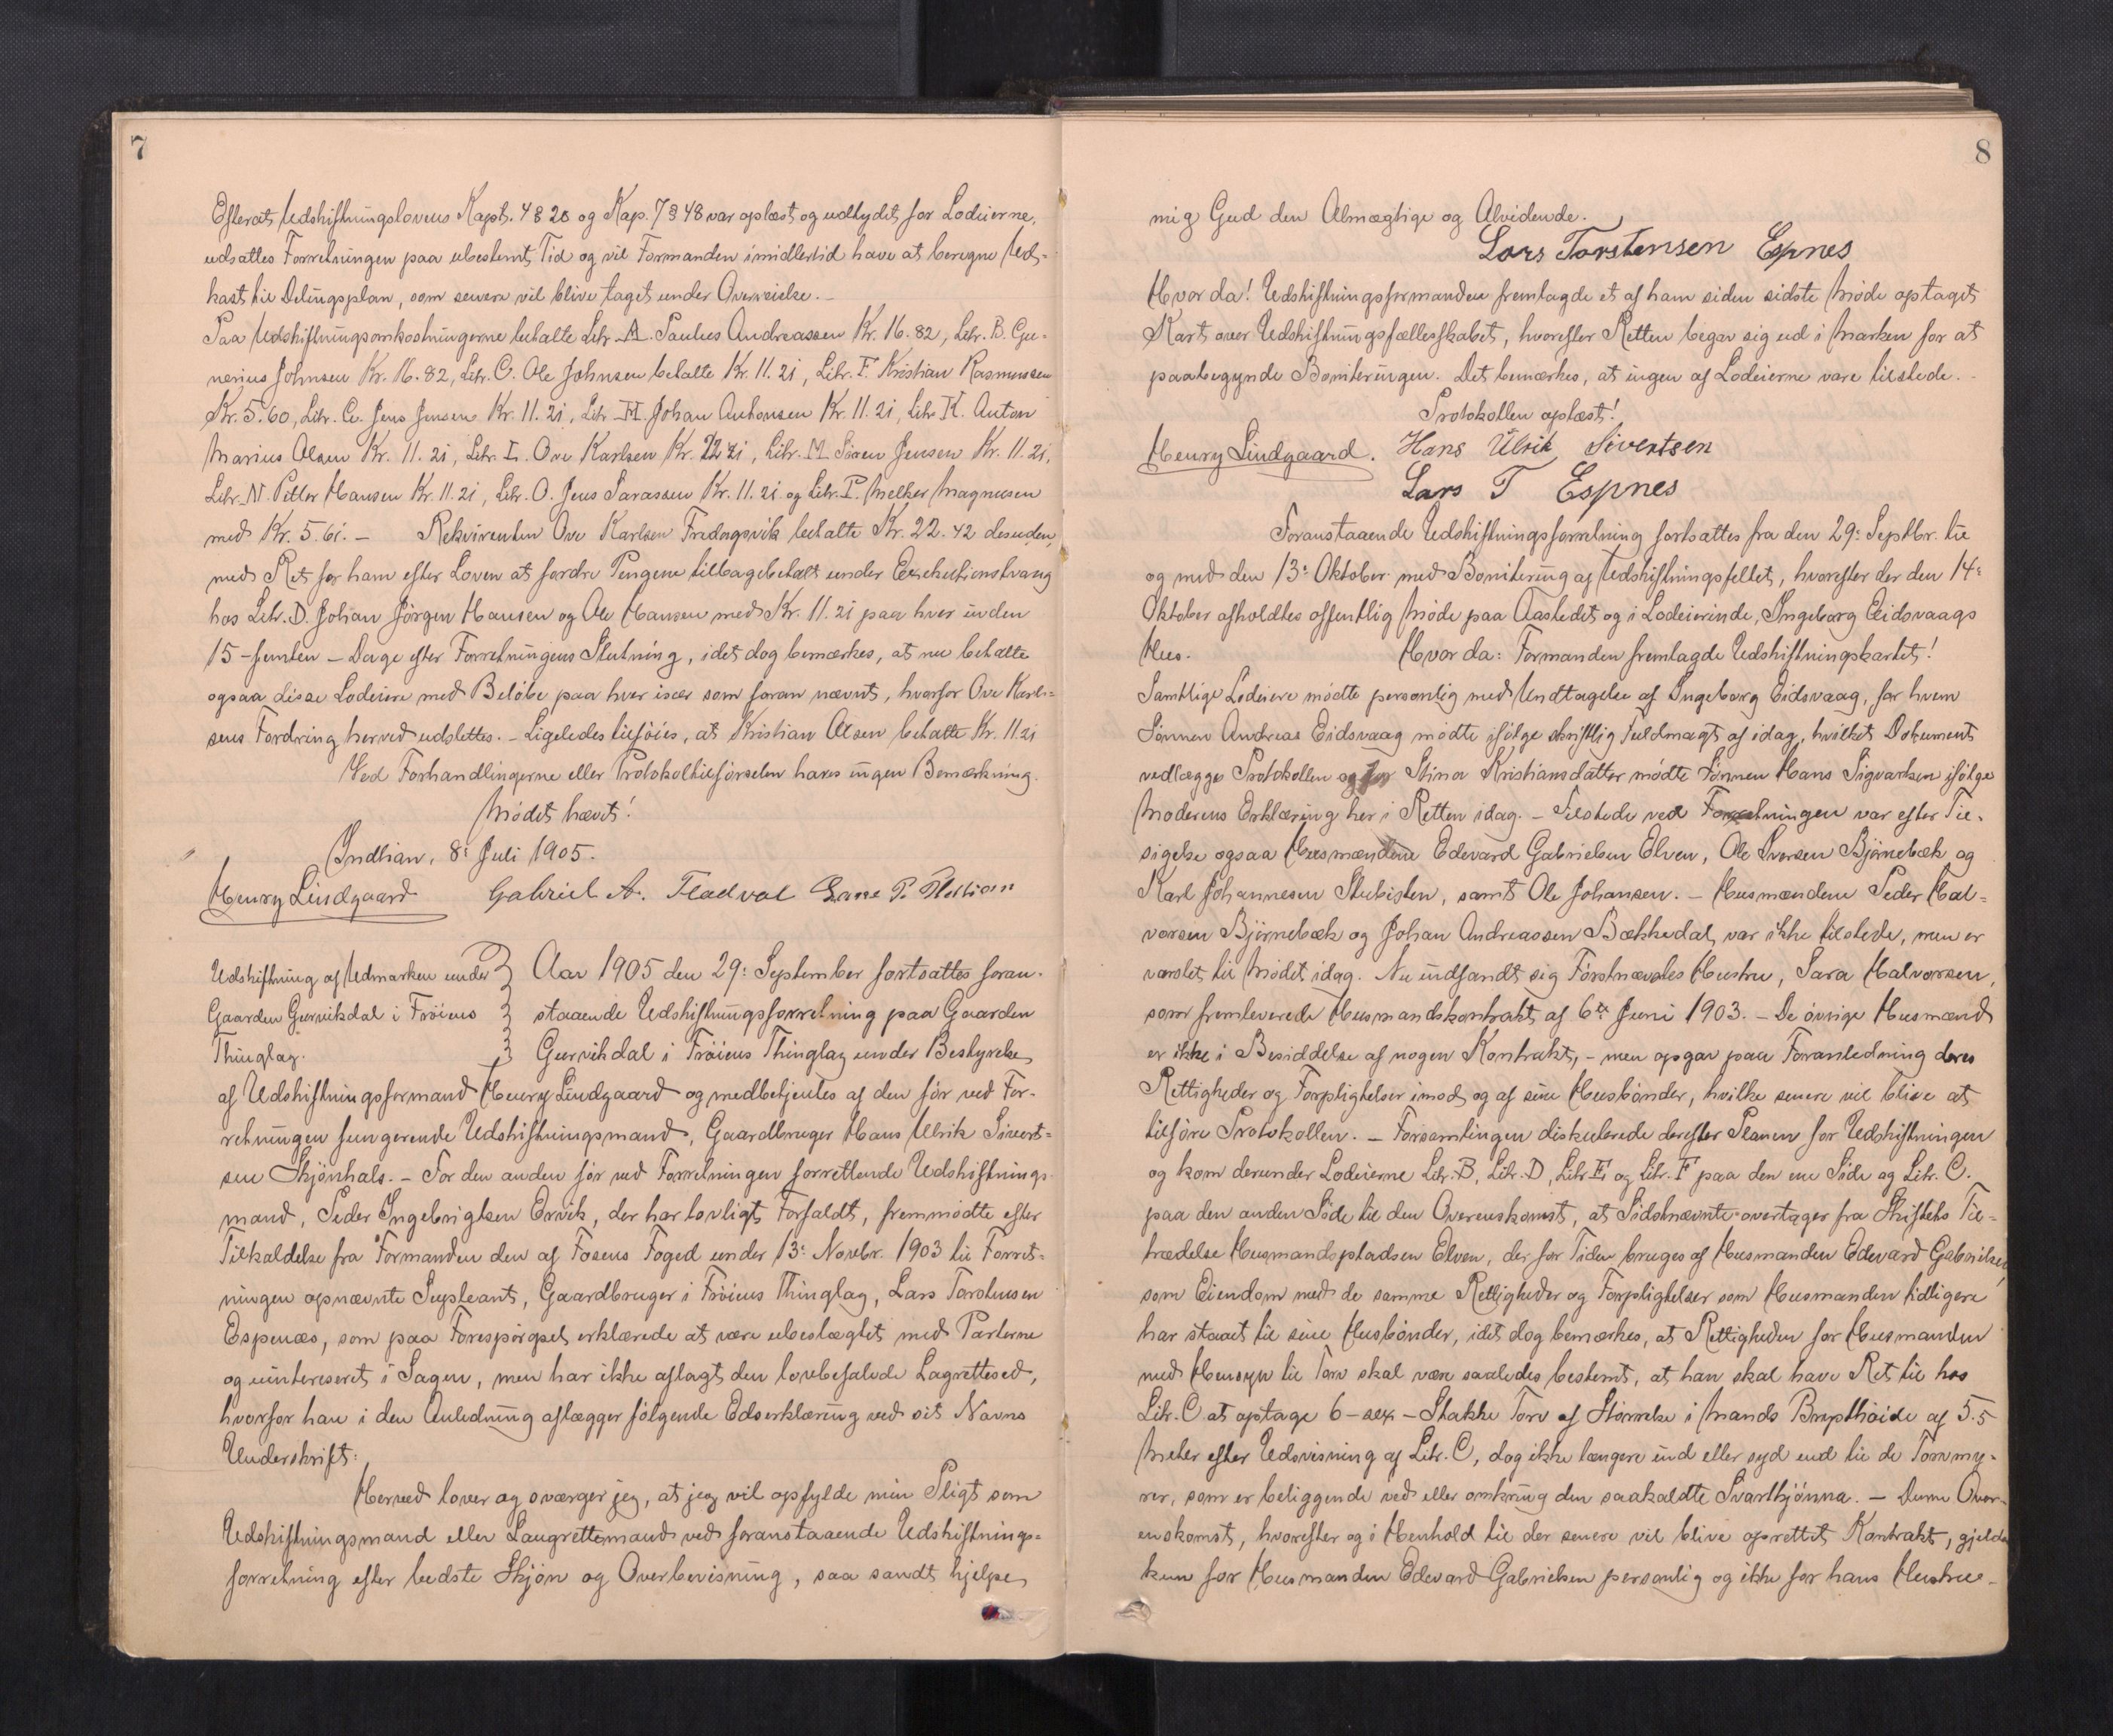 7
Efterat Udskiftningslovens Kapt. 4 § 28 og Kap. 7 § 48 var oplæst og udtydet for Lodeierne,
udsattes Forretningen paa ubestemt Tid og vil Formanden imidlertid have at beregne Ud-
kast til Delingsplan, som senere vil blive taget under Overveielse. –
Paa Udskiftningsomkostningerne betalte Litr. A. Paulus Andreassen Kr. 16.82, Litr. B. Gu-
nerius Johnsen Kr. 16.82, Litr. C. Ole Johnsen betalte Kr. 11.21, Litr. F. Kristian Rasmussen
Kr. 5.60, Litr. G. Jens Jensen Kr. 11.21, Litr. H. Johan Antonsen Kr. 11.21, Litr. K. Anton
Marius Olsen Kr. 11.21, Litr. L. Ove Karlsen Kr. 22 21, Litr. M. Sören Jensen Kr. 11.21,
Litr. N. Petter Hansen Kr. 11.21, Litr. O. Jens Sarassen Kr. 11.21 og Litr. P. Melker Magnusen
med Kr. 5.61. – Rekvirenten Ove Karlsen Fredagsvik betalte Kr. 22.42 desuden,
med Ret for ham efter Loven at fordre Pengene tilbagebetalt under Exekutionstvang
hos Litr. D. Johan Jörgen Hansen og Ole Hansen med Kr. 11.21 paa hver inden
15 – femten – Dage efter Forretningens Slutning, idet dog bemærkes, at nu betalte
ogsaa disse Lodeiere med Beløbe paa hver især som foran nævnt, hvorfor Ove Karl-
sens Fordring herved udslettes. – Ligeledes tilföies, at Kristian Olsen betalte Kr. 11.21
Ved Forhandlingerne eller Protokoltilførselen haves ingen Bemærkning.
Mødet hævet!
Indtian, 8: Juli 1905.
Henry Lindgaard Gabriel A. Fladval Lars P.
Udskiftning af Udmarken under
Gaarden Gurvikdal i Fröiens
Thinglag.
Aar 1905 den 29: September fortsattes foran-
staaende Udskiftningsforretning paa Gaarden
Gurvikdal i Fröiens Thinglag under Bestyrelse
af Udskiftningsformand Henry Lindgaard og medbetjentes af den før ved For-
retningen fungerende Udskiftningsmand, Gaardbruger Hans Ulrik Sivert-
sen Skjönhals. – For den anden før ved Forretningen forrettende Udskiftnings-
mand, Peder Ingebrigtsen Ervik, der har lovligt Forfald, fremmødte efter
Tilkaldelse fra Formanden den af Fosens Foged under 13: Novbr. 1903 til Forret-
ningen opnævnte Supleant, Gaardbruger i Fröiens Thinglag, Lars Torstensen
Espenæs, som paa Forespørgsel erklærede at være ubeslægtet med Parterne
og uinteresseret i Sagen, men har ikke aflagt den lovbefalede Lagrettesed,
hvorfor han i den Anledning aflægger følgende Edserklæring ved sit Navns
Underskrift:
Herved lover og sværger jeg, at jeg vil opfylde min Pligt som
Udskiftningsmand eller Laugrettemand ved foranstaaende Udskiftnings-
forretning efter bedste Skjön og Overbevisning, saa sandt hjelpe
8
mig Gud den Almægtige og Alvidende.
Lars Torstensen Espnes
Hvor da! Udskiftningsformanden fremlagde et af ham siden sidste Møde optaget
Kart over Udskiftningsfællesskabet, hvorefter Retten begav sig ud i Marken for at
paabegynde Boniteringen. Det bemærkes, at ingen af Lodeierne vare tilstede. –
Protokollen oplæst!
Henry Lindgaard. Hans Ulrik Sivertsen
Lars T Espnes
Foranstaaende Udskiftningsforretning fortsattes fra den 29: Septbr. til
og med den 13: Oktober med Bonitering af Udskiftningsfeltet, hvorefter der den 14:
Oktober afholdtes offentlig Møde paa Aastedet og i Lodeierinde, Ingeborg Eidsvaags
Hus. Hvor da: Formanden fremlagde Udskiftningskartet!
Samtlige Lodeiere mödte personlig med Undtagelse af Ingeborg Eidsvaag, for hvem
Sönnen Andreas Eidsvaag mødte ifølge skriftlig Fuldmagt af idag, hvilket Dokument
vedlægges Protokollen og for Stina Kristiansdatter mödte Sönnen Hans Sigvartsen ifölge
Moderens Erklæring her i Retten idag. – Tilstede ved Forretningen var efter Til-
sigelse ogsaa Husmændene Edevard Gabrielsen Elven, Ole Iversen Björnebæk og
Karl Johannesen Stubisten, samt Ole Johansen. – Husmændene Peder Hal-
vorsen Björnebæk og Johan Andreassen Bækkedal, var ikke tilstede, men er
varslet til Mødet idag. Nu indfandt sig Förstnævntes Hustru, Sara Halvorsen,
som fremleverede Husmandskontrakt af 6te Juni 1903. – De övrige Husmænd
er ikke i Besiddelse af nogen Kontrakt, – men opgav paa Foranledning deres
Rettigheder og Forpligtelser imod og af sine Husbönder, hvilke senere vil blive at
tilføre Protokollen. – Forsamlingen diskuterede derefter Planen for Udskiftningen
og kom derunder Lodeierne Litr. B, Litr. D, Litr. E og Litr. F paa den ene Side og Litr. C.
paa den anden Side til den Overenskomst, at Sidstnævnte overtager fra Skiftets Til-
trædelse Husmandspladsen Elven, der for Tiden bruges af Husmanden Edevard Gabrielsen,
som Eiendom med de samme Rettigheder og Forpligtelser som Husmanden tidligere
har staaet til sine Husbönder, idet dog bemærkes, at Rettigheden for Husmanden
med Hensyn til Torv skal være saaledes bestemt, at han skal have Ret til hos
Litr. C at optage 6 – sex – Stakke Torv af Størrelse i Mands Brysthöide af 5.5
Meter efter Udvisning af Litr. C, dog ikke længere ind eller syd end til de Torvmy-
rer, som er beliggende ved eller omkring den saakaldte Svarttjönna. – Denne Over-
enskomst, hvorefter og i Henhold til der senere vil blive oprettet Kontrakt, gjelder
kun for Husmanden Edevard Gabrielsen personlig og ikke for hans Hustru –